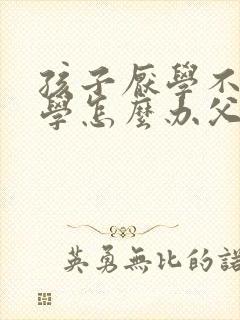 孩子厭學不
學怎麼办父
英勇無比的諾